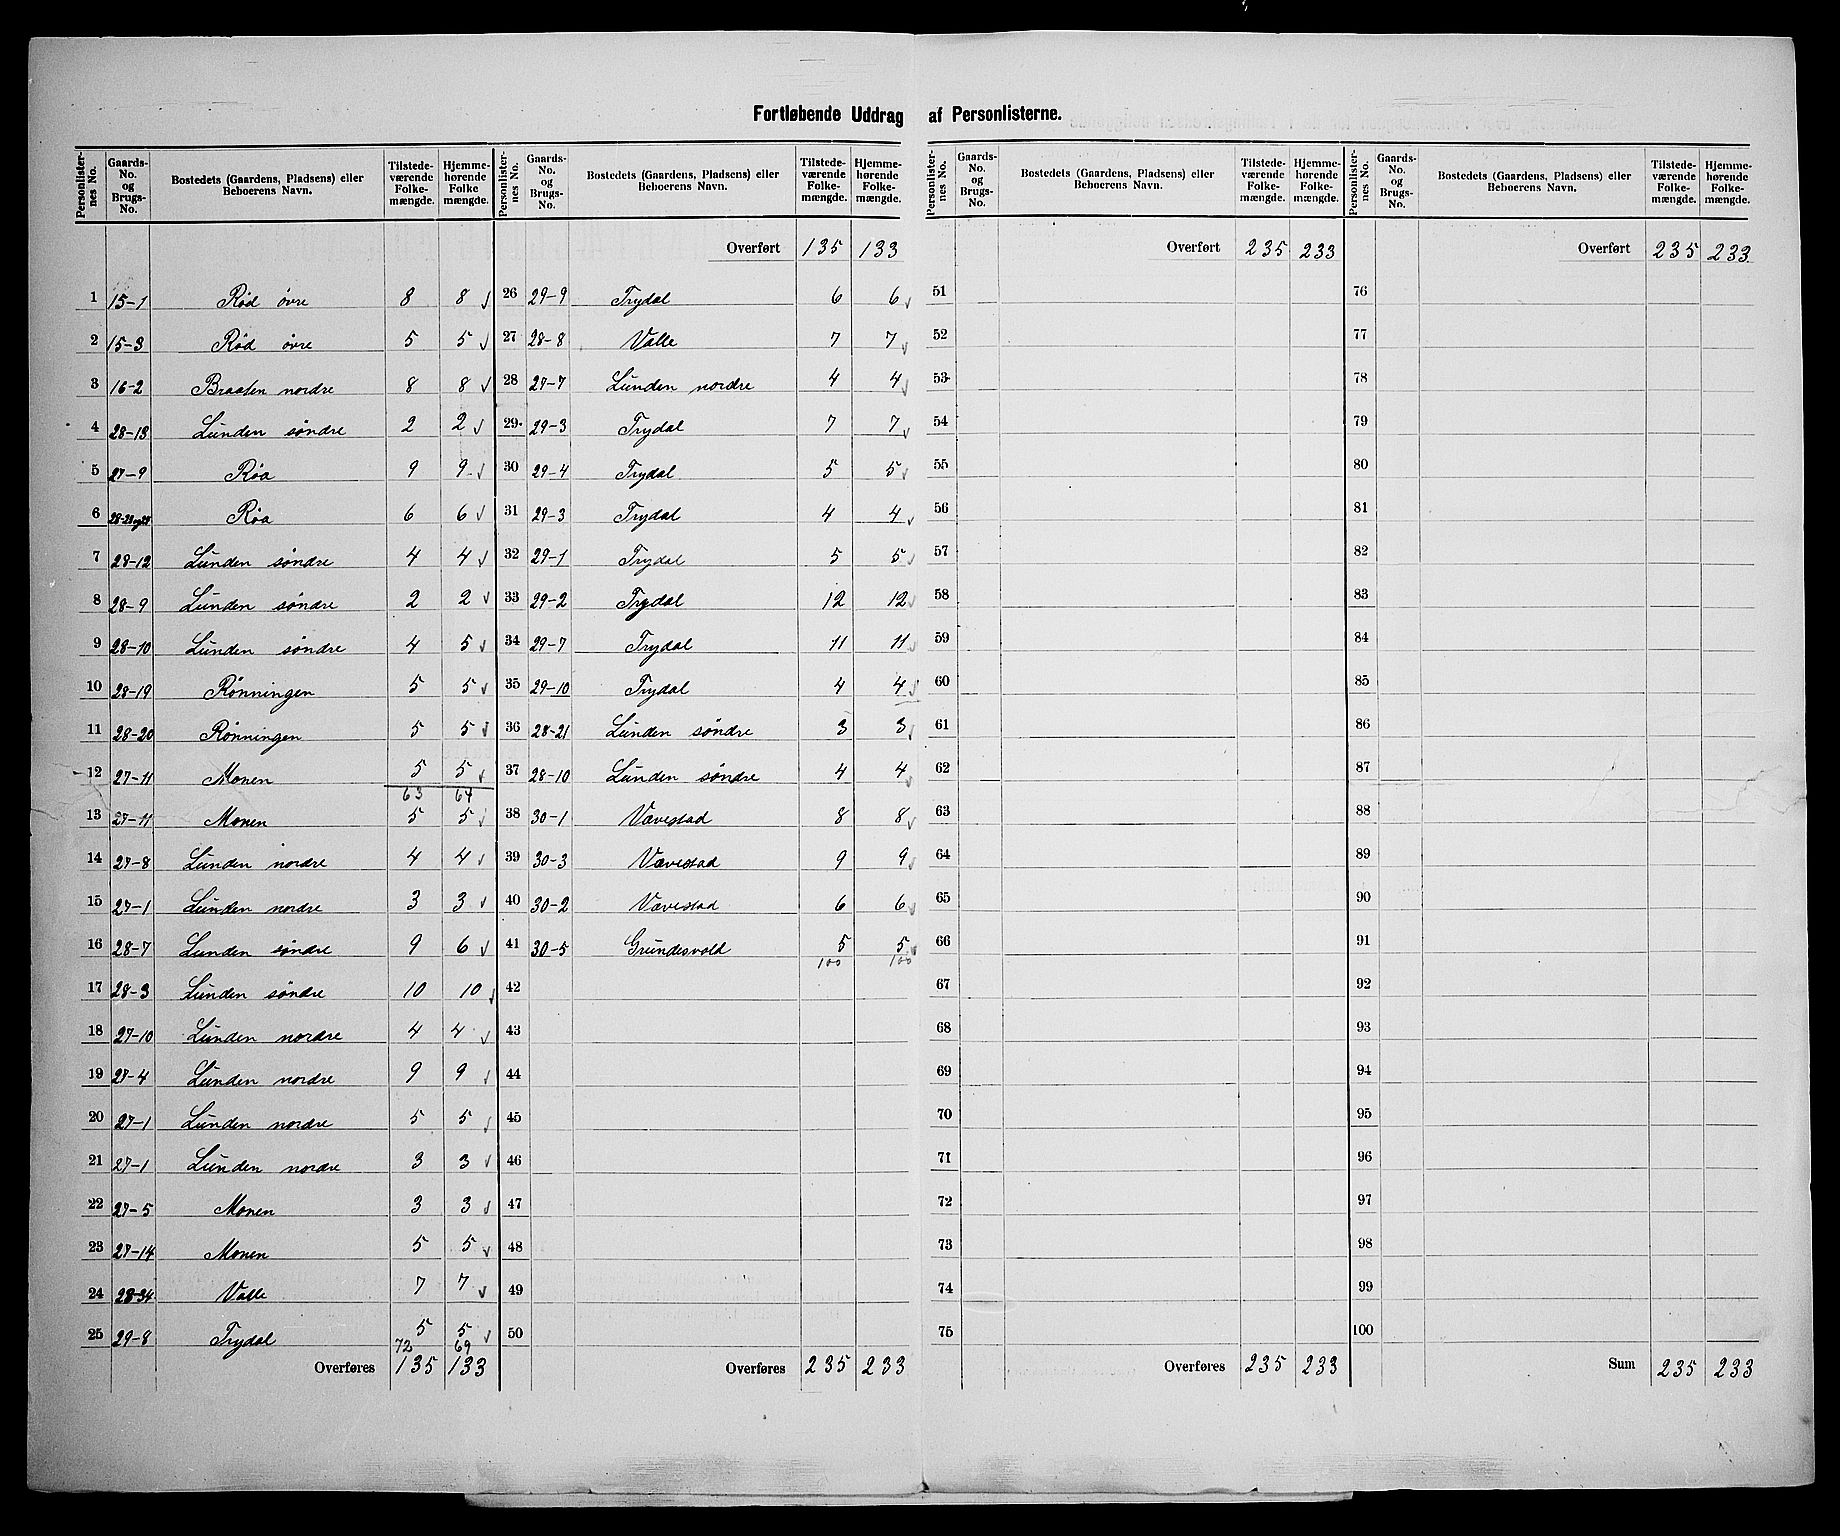 Fortløbende Uddrag af Personlisterne.
Personlister-nes No. Gaards-No. og Brugs-No. Bostedets (Gaardens, Pladsens) eller Beboerens Navn. Tilstede-værende Folke-mængde. Hjemme-hørende Folke mængde.
1 15-1 Rød øvre 8 8
2 15-3 Rød øvre 5 5
3 16-2 Braaten nordre 8 8
4 28-13 Lunden søndre 2 2
5 27-9 Røa 9 9
6 Røa 6 6
7 28-12 Lunden søndre 4 4
8 28-9 Lunden søndre 2 2
9 28-10 Lunden søndre 4 5
10 28-19 Rønningen 5 5
11 28-20 Rønningen 5 5
12 27-11 Monen 5 5
63 64
13 27-11 Monen 5 5
14 27-8 Lunden nordre 4 4
15 27-1 Lunden nordre 3 3
16 28-7 Lunden søndre 9 6
17 28-3 Lunden søndre 10 10
18 27-10 Lunden nordre 4 4
19 27-4 Lunden nordre 9 9
20 27-1 Lunden nordre 5 5
21 27-1 Lunden nordre 3 3
22 27-5 Monen 3 3
23 27-14 Monen 5 5
24 28-34 Valle 7 7
25 29-8 Trydal 5 5
72 69
Overføres 135 133
Personlister-nes No. Gaards-No. og Brugs-No. Bostedets (Gaardens, Pladsens) eller Beboerens Navn. Tilstede-værende Folke-mængde. Hjemme-hørende Folke-mængde.
Overført 135 133
26 29-9 Trydal 6 6
27 28-8 Valle 7 7
28 27-7 Lunden nordre 4 4
29 29-3 Trydal 7 7
30 29-4 Trydal 5 5
31 29-3 Trydal 4 4
32 29-1 Trydal 5 5
33 29-2 Trydal 12 12
34 29-7 Trydal 11 11
35 29-10 Trydal 4 4
36 28-21 Lunden søndre 3 3
37 28-10 Lunden søndre 4 4
38 30-1 Vævestad 8 8
39 30-3 Vævestad 9 9
40 30-2 Vævestad 6 6
41 30-5 Grundesvold 5 5
100 100
42
43
44
45
46
47
48
49
50
Overføres 235 233
Personlister-nes No. Gaards-No. og Brugs-No. Bostedets (Gaardens, Pladsens) eller Beboerens Navn. Tilstede-værende Folke-mængde. Hjemme-hørende Folke-mængde.
Overført 235 233
51
52
53
54
55
56
57
58
59
60
61
62
63
64
65
66
67
68
69
70
71
72
73
74
75
Overføres 235 233
Personlister-nes No. Gaards-No. og Brugs-No. Bostedets (Gaardens, Pladsens) eller Beboerens Navn. Tilstede-værende Folke-mængde. Hjemme-hørende Folke-mængde.
Overført 235 233
76
77
78
79
80
81
82
83
84
85
86
87
88
89
90
91
92
93
94
95
96
97
98
99
100
Sum 235 233